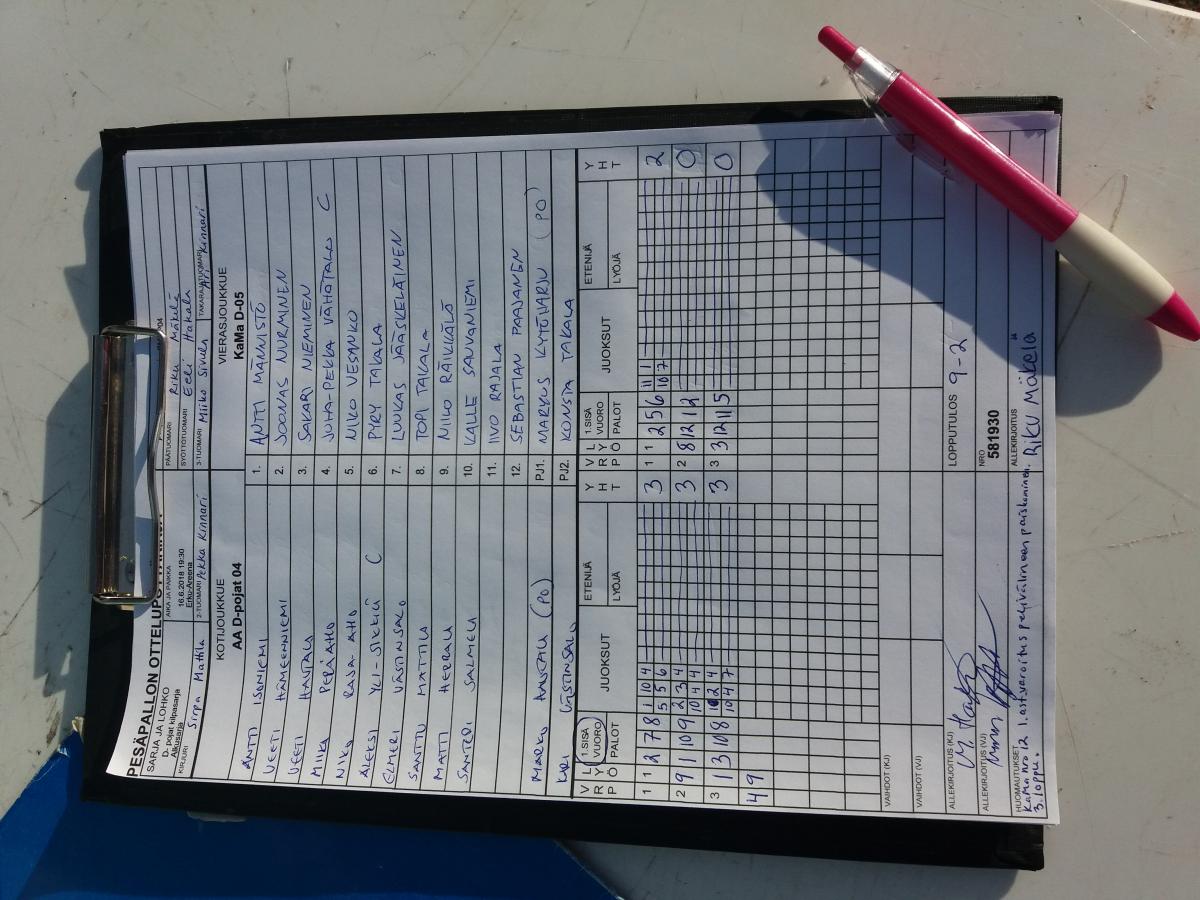 PESÄPALLON OTTELUPÖYTÄKIRJA
SARJA JA LOHKO
D- pojat kilpasarja
Alkusarja
AIKA JA PAIKKA
16.6.2018 19:30
Erku-Areena
PÄÄTUOMARI Riku Mäkelä
SYÖTTÖTUOMARI Eeli Hakala
KIRJURI Sirpa Mattila
2-TUOMARI Pekka Kinnari
3-TUOMARI Miiko Sivula
TAKARAJATUOMARI Ari Kinnari
KOTIJOUKKUE VIERASJOUKKUE
AA D-pojat 04 KaMa D-05
ANTTI ISONIEMI 1. ANTTI MÄNNISTÖ
VEETI HÄMEENNIEMI 2. JOONAS NURMINEN
VEETI HAUTALA 3. SAKARI NIEMINEN
MIIKA PERÄAHO 4. JUHA-PEKKA VÄHÄTALO C
NIKO RAJA-AHO 5. NIKO VESANKO
ALEKSI YLI-SIKKILÄ C 6. PYRY TAKALA
ELMERI VÄSTINSALO 7. LUUKAS JÄÄSKELÄINEN
SANTTU MATTILA 8. TOPI TAKALA
MATTI HERRALA 9. NIILO RÄIKKÄLÖ
SANTERI SALMELA 10. KALLE SAUVANIEMI
11. IIVO RAJALA
12. SEBASTIAN PAAJANEN
MARKO (PO) PJ1. MARKUS KYTÖHARJU (PO)
KARI VÄSTINSALO PJ2. KONSTA TAKALA
V P L Y R Ö 1.SISÄ VUORO PALOT JUOKSUT ETENIJÄ LYÖJÄ Y H T V P L Y R Ö 1.SISÄ VUORO PALOT JUOKSUT ETENIJÄ LYÖJÄ Y H T
1 1 2 7 8 1 10 4 3 1 1 2 5 6 11 1 2
5 5 6 10 7
2 9 1 10 9 2 3 4 3 2 8 12 12 0
10 4 4
3 1 3 10 8 10 2 4 3 3 3 12 11 5 0
10 4 7
4 9
VAIHDOT (KJ)
VAIHDOT (VJ)
ALLEKIRJOITUS (KJ) LOPPUTULOS 9-2
ALLEKIRJOITUS (VJ) NRO
581930
HUOMAUTUKSET ALLEKIRJOITUS Riku Mäkelä
KaMa nro 12 1. ast. varoitus pelivälineen paiskominen.
3. loppu.